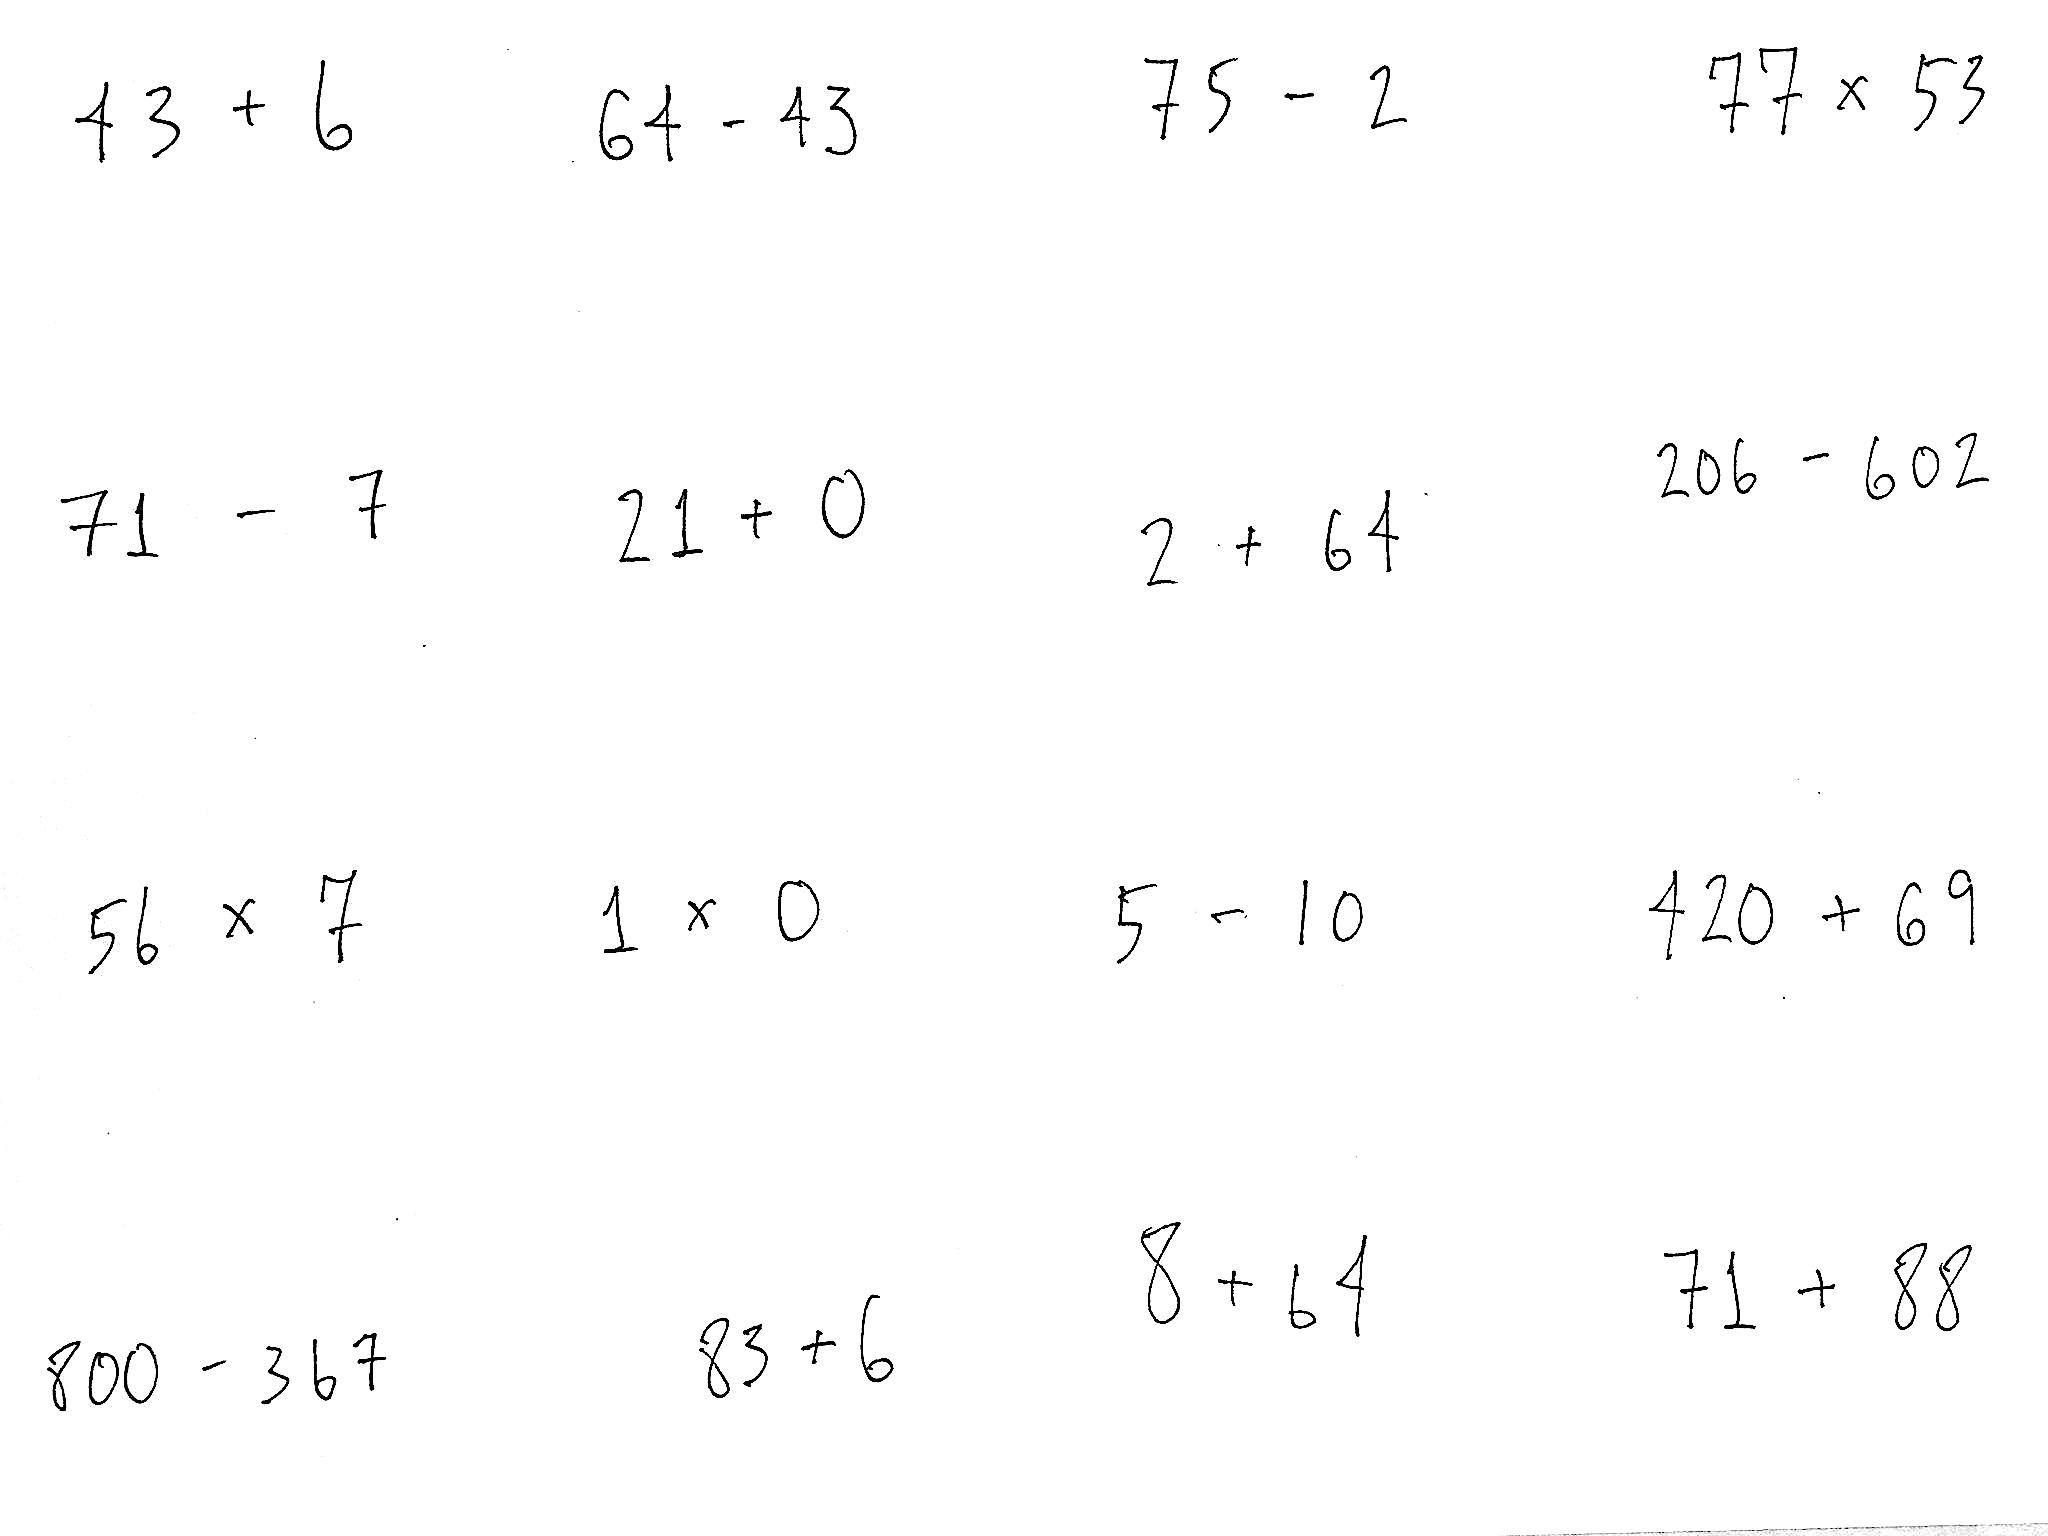 43 + 6
64 - 43
75 - 2
77 x 53
71 - 7
21 + 0
2 + 64
206 - 602
56 x 7
1 x 0
5 - 10
420 + 69
800 - 367
83 + 6
8 + 64
71 + 88